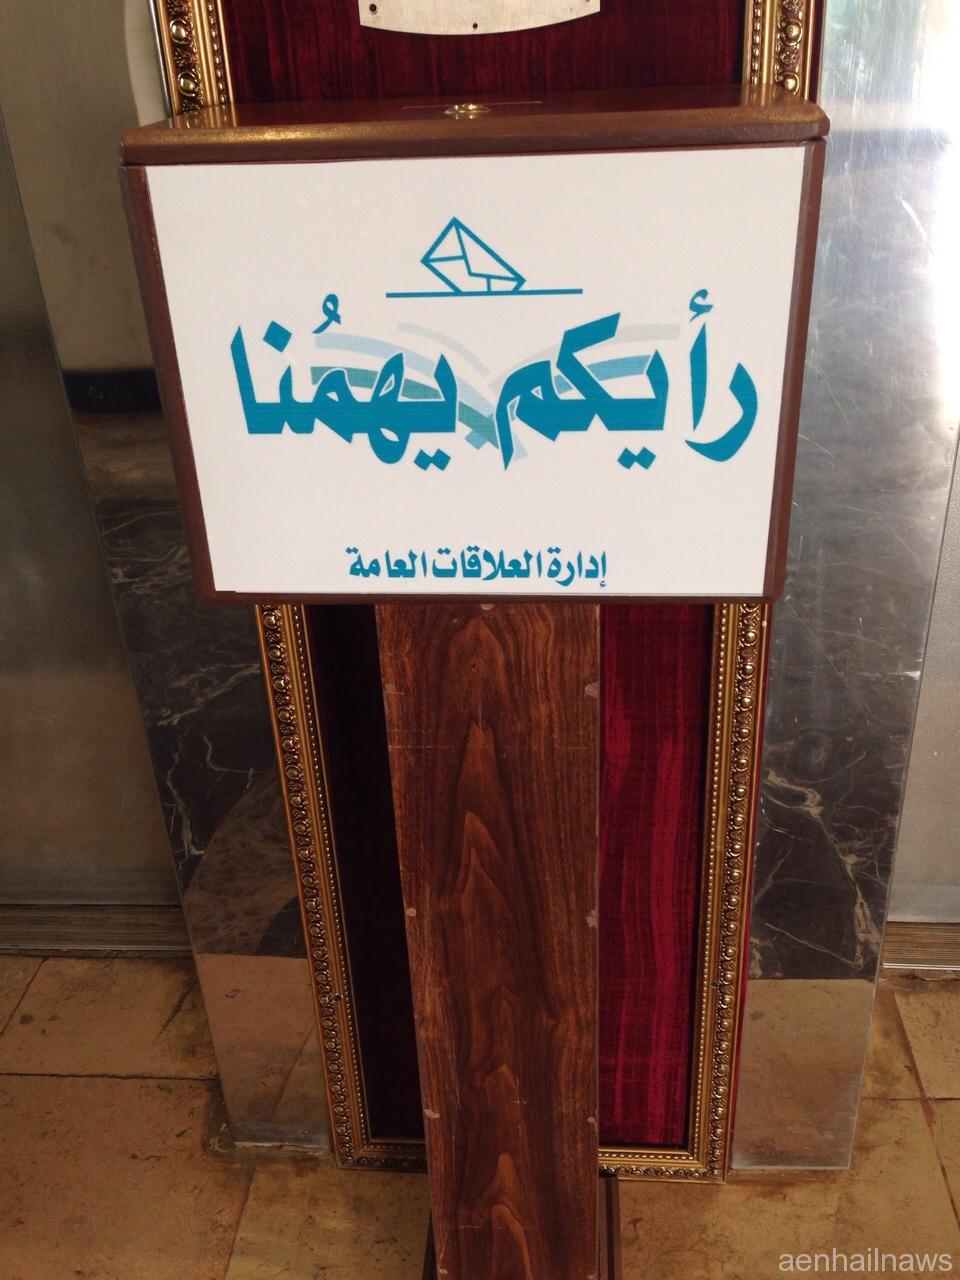 رأيكم يهمُنا
إدارة العلاقات العامة
aenhailnaws